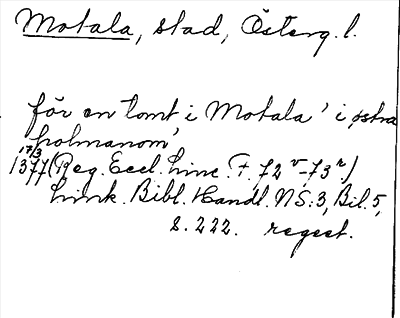 Motala, stad, Österg. l.
för en tomt i Motala 'i østra
holmanom'
17/3
1377 (Reg. Eccl. Linc. F. 72ᵛ-73ʳ)
Link. Bibl. Handl. NS: 3, Bil. 5,
s. 222. regest.